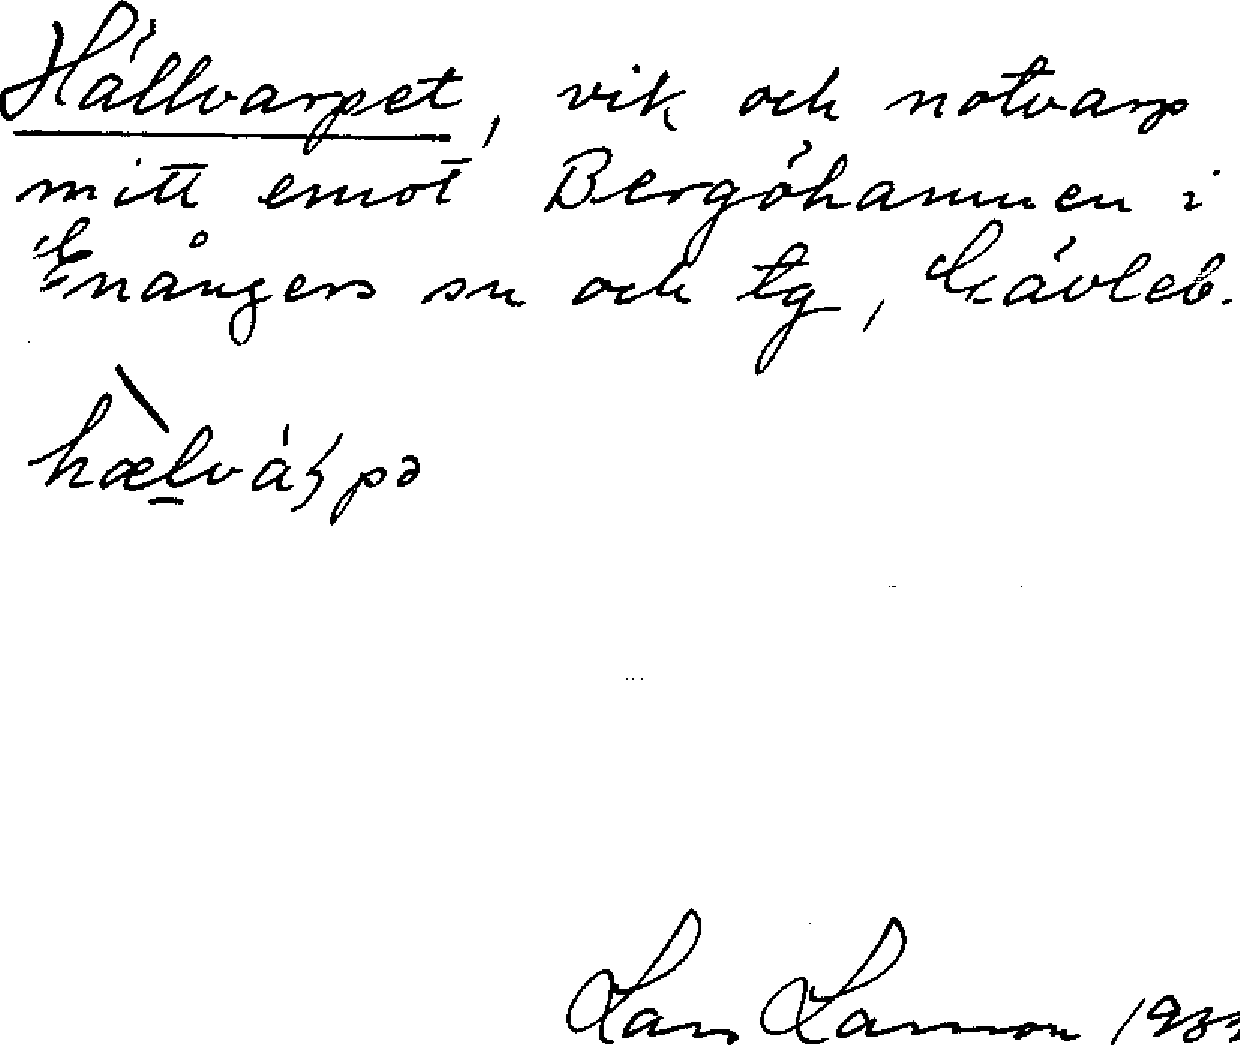 Hällvarpet, vik och notvarp
mitt emot Bergöhamnen i
Enångers sn och tg, Gävleb.
hælvárpə
Lars Larsson